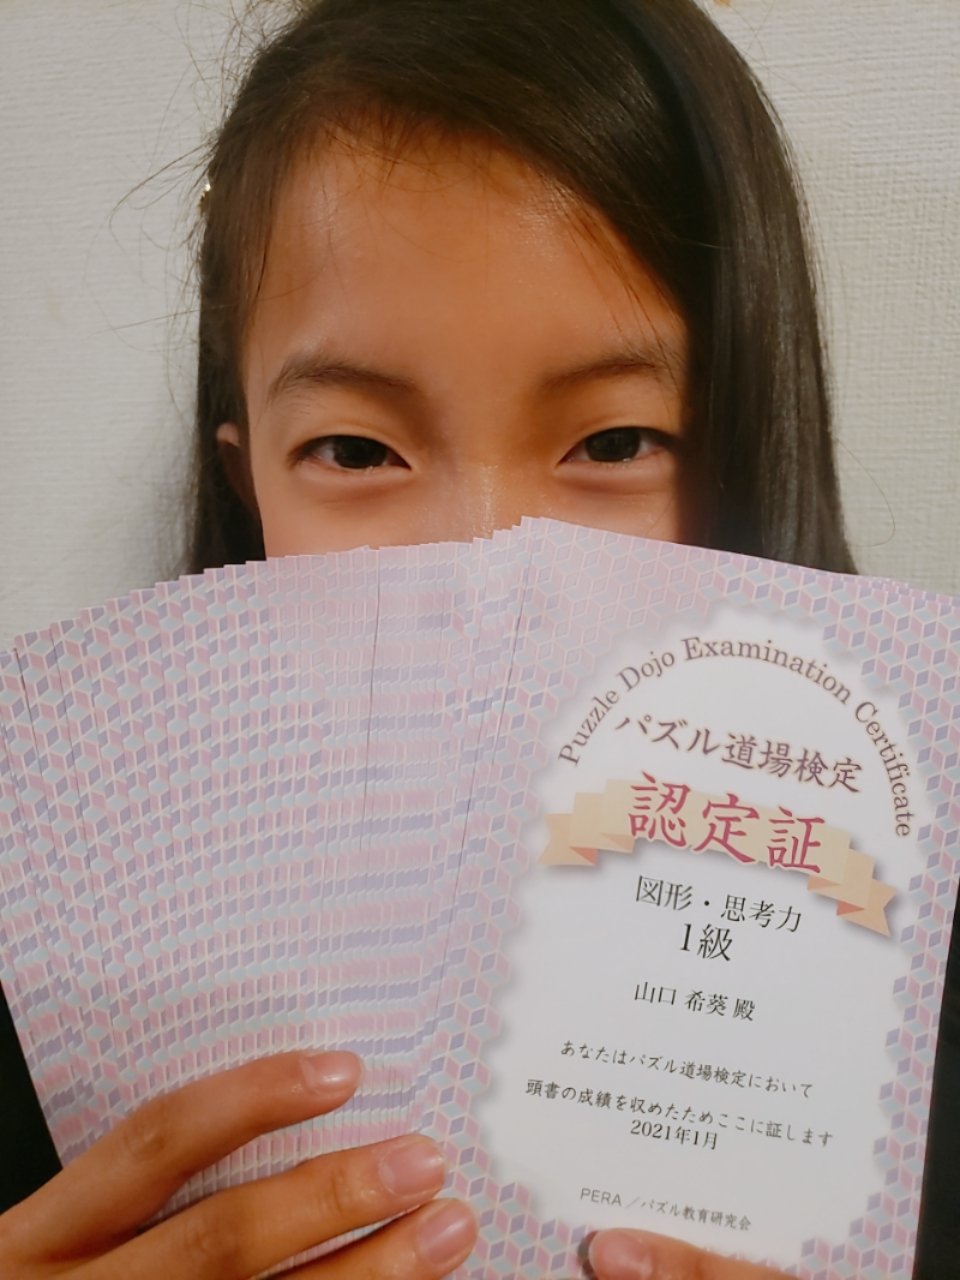 Puzzle Dojo Examination Certificate
パズル道場検定
認定証
図形・思考力
1級
山口 希葵 殿
あなたはパズル道場検定において
頭書の成績を収めたためここに証します
2021年1月
PERA／パズル教育研究会